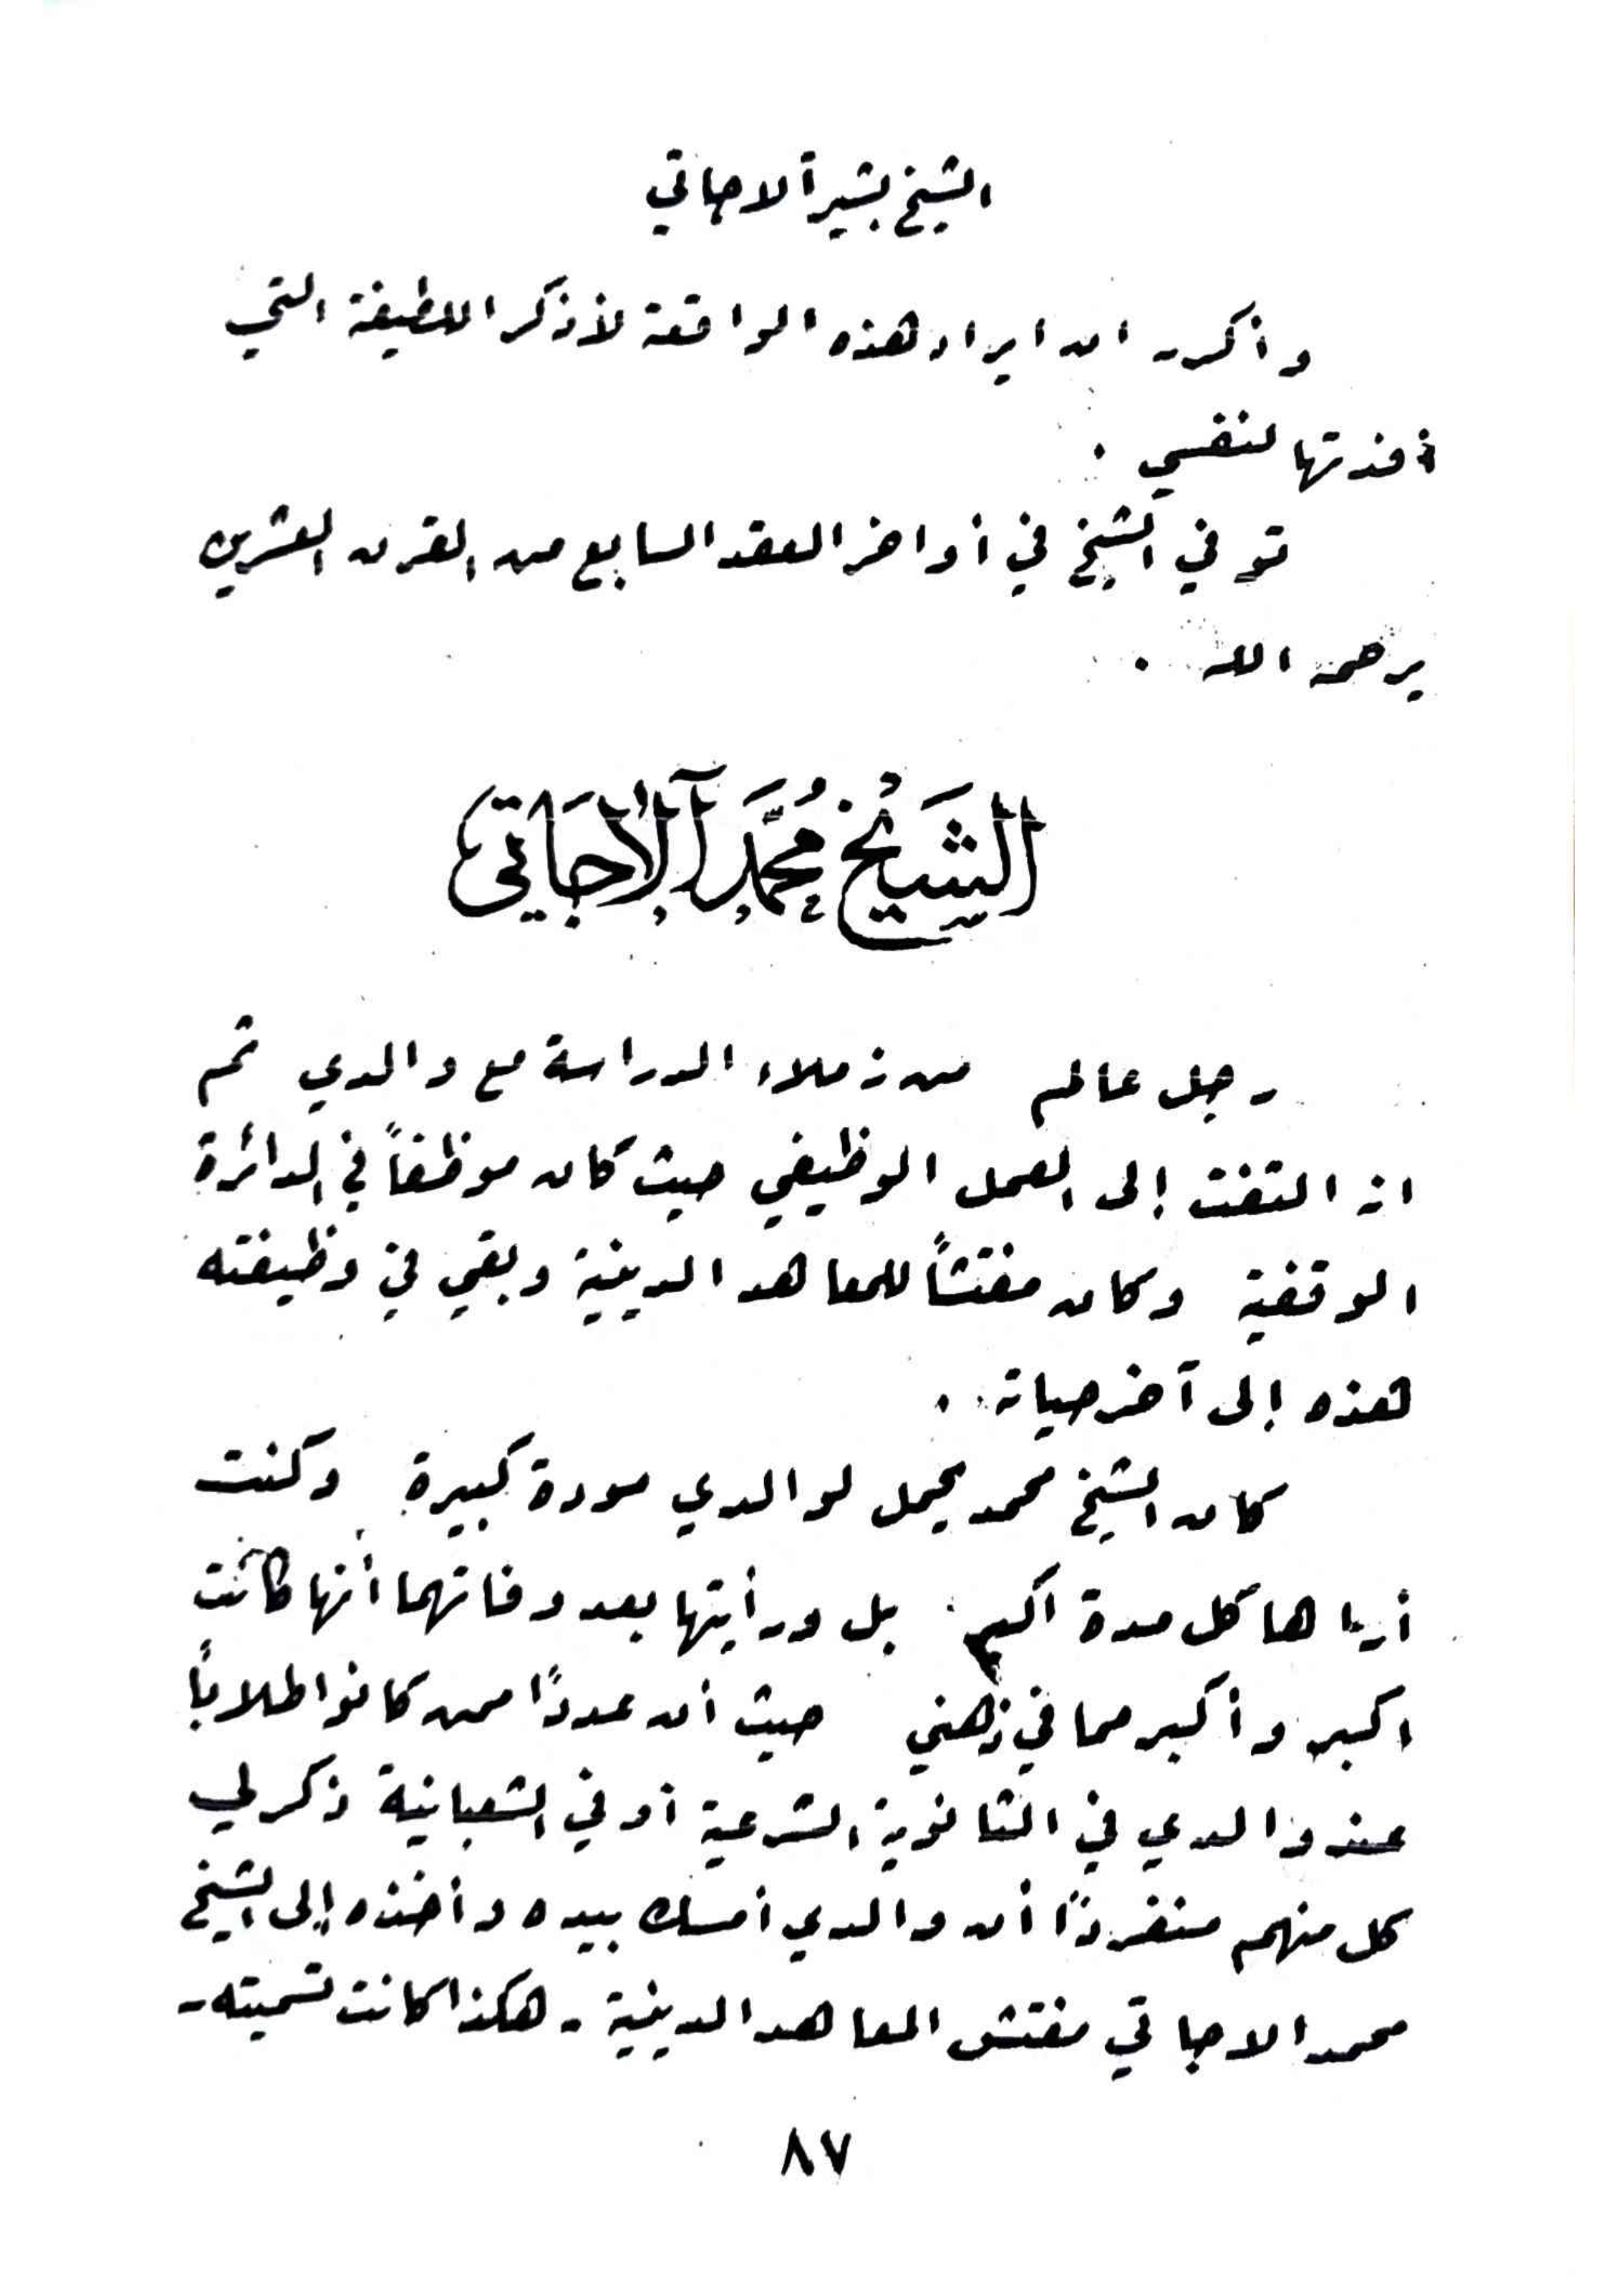 الشيخ بشير آلاجاتي
واكرر ان ايراد هذه الواقعة لأذكر اللطيفة التي
أخذتها لنفسي .
توفي الشيخ في أواخر العقد السابع من القرن العشرين
يرحمه الله .
الشَيْخ مُحَمَّد آلاجَاتي
رجل عالم من زملاء الدراسة مع والدي ثم
انه التفت إلى العمل الوظيفي حيث كان موظفاً في الدائرة
الوقفية وكان مفتشاً للمعاهد الدينية وبقي في وظيفته
هذه إلى آخر حياته .
كان الشيخ محمد يحمل لوالدي مودة كبيرة وكنت
أراها كل مدة اكبر بل ورأيتها بعد وفاتهما أنها كانت
اكبر وأكبر مما في ذهني حيث أن عددًا ممن كانوا طلابًا
عند والدي في الثانوية الشرعية أو في الشعبانية ذكر لي
كل منهم منفردًا أن والدي أمسك بيده وأخذه إلى الشيخ
محمد الاجاتي مفتش المعاهد الدينية - هكذا كانت تسميته -
٨٧